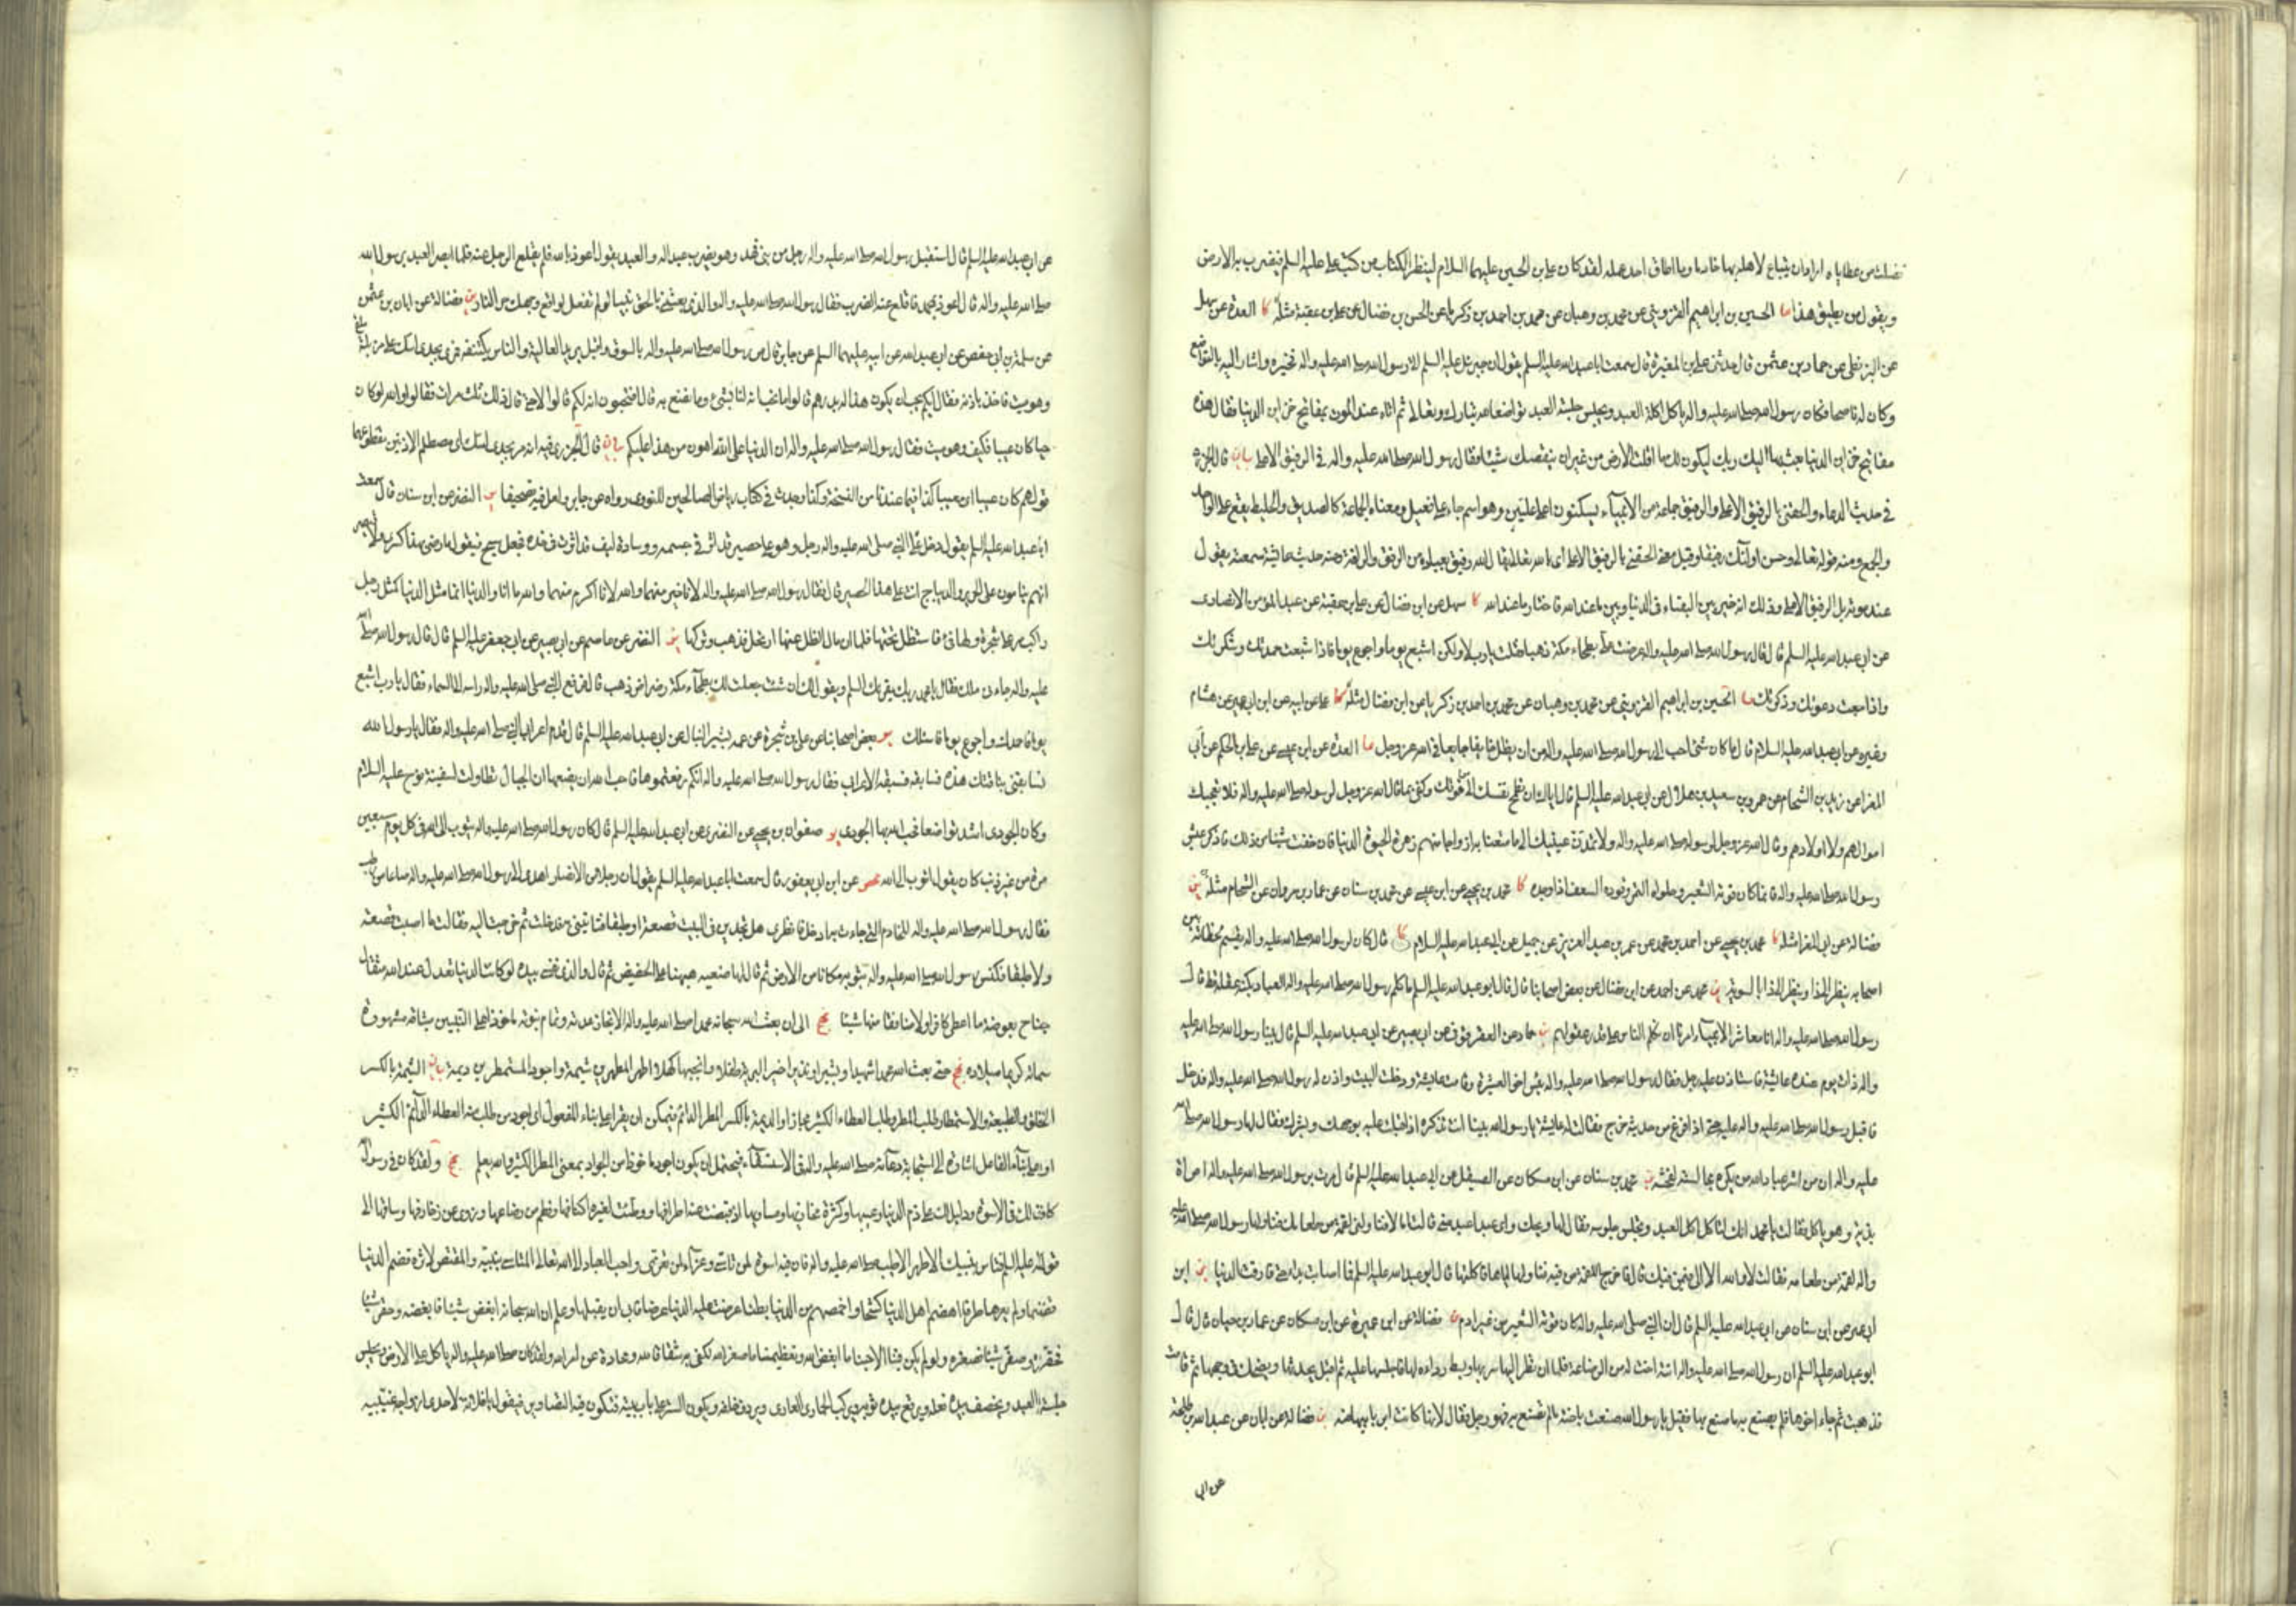 فضلت من عطاياه اراد ان يبتاع لاهله بها خادما وما اطاق احد عمله لقد كان علي بن الحسين عليهما السلام لينظر الكتاب من كتب علي عليه السلم فيضرب به الارض
ويقول من يطيق هذا ما الحسين بن ابراهيم القزويني عن محمد بن وهبان عن محمد بن احمد بن زكريا عن الحسن بن فضال عن علي بن عقبة مثله كا العدة عن سهل
عن البزنطي عن حماد بن عثمن قال حدثني علي بن المغيرة قال سمعت ابا عبد الله عليه السلم يقول ان جبرئيل عليه السلم اتى رسول الله صلى الله عليه واله فخيره واشار اليه بالتواضع
وكان له ناصحا فكان رسول الله صلى الله عليه واله ياكل اكلة العبد ويجلس جلسة العبد تواضعا لله تبارك وتعالى ثم اتاه عند الموت بمفاتيح خزاين الدنيا فقال هذه
مفاتيح خزاين الدنيا بعث بها اليك ربك ليكون لك ما اقلت الارض من غير ان ينقصك شيئا فقال رسول الله صلى الله عليه واله في الرفيق الاعلى بيان قال الجزري
في حديث الدعاء والحقني بالرفيق الاعلى والرفيق جماعة من الانبياء يسكنون اعلى عليين وهو اسم جاء على فعيل ومعناه الجماعة كالصديق والخليط يقع على الواحد
والجمع ومنه قوله تعالى وحسن اولئك رفيقا وقيل معنى الحقني بالرفيق الاعلى اي بالله تعالى يقال الله رفيق بعباده من الرفق والرافة ومنه حديث عايشة سمعته يقول
عند موته بل الرفيق الاعلى وذلك انه خير بين البقاء في الدنيا وبين ما عند الله فاختار ما عند الله كا سهل عن ابن فضال عن علي بن عقبة عن عبد المؤمن الانصاري
عن ابي عبد الله عليه السلم قال قال رسول الله صلى الله عليه واله عرضت علي بطحاء مكة ذهبا فقلت يا رب لا ولكن اشبع يوما واجوع يوما فاذا شبعت حمدتك وشكرتك
واذا جعت دعوتك وذكرتك ما الحسين بن ابراهيم القزويني عن محمد بن وهبان عن محمد بن احمد بن زكريا عن ابن فضال مثله كا علي عن ابيه عن ابن ابي عمير عن هشام
وغيره عن ابي عبد الله عليه السلام قال ما كان شئ احب الى رسول الله صلى الله عليه واله من ان يظل خايفا جايعا في الله عز وجل كا العدة عن ابن عيسى عن علي بن الحكم عن ابي
المغرا عن زيد الشحام عن عمرو بن سعيد بن هلال عن ابي عبد الله عليه السلم قال اياك ان تطمح نفسك الى من فوقك وكفى بما قال الله عز وجل لرسوله صلى الله عليه واله فلا تعجبك
اموالهم ولا اولادهم وقال الله عز وجل لرسوله صلى الله عليه واله ولا تمدن عينيك الى ما متعنا به ازواجا منهم زهرة الحيوة الدنيا فان خفت شيئا من ذلك فاذكر عيش
رسول الله صلى الله عليه واله فانما كان قوته الشعير وحلواه التمر وقوده السعف اذا وجده كا محمد بن يحيى عن ابن عيسى عن محمد بن سنان عن عمار بن مروان عن الشحام مثله ين
فضالة عن ابي المغرا مثله كا محمد بن يحيى عن احمد بن محمد عن عمر بن عبد العزيز عن جميل عن ابي عبد الله عليه السلام قال كان رسول الله صلى الله عليه واله يقسم لحظاته بين
اصحابه ينظر الى ذا وينظر الى ذا بالسوية كا محمد عن احمد عن ابن فضال عن بعض اصحابنا قال قال ابو عبد الله عليه السلم ما كلم رسول الله صلى الله عليه واله العباد بكنه عقله قط قال
رسول الله صلى الله عليه واله انا معاشر الانبياء امرنا ان نكلم الناس على قدر عقولهم ين حماد عن العقرقوفي عن ابي بصير عن ابي عبد الله عليه السلم قال بينا رسول الله صلى الله عليه
واله ذات يوم عنده عايشة فاستاذن عليه رجل فقال رسول الله صلى الله عليه واله بئس اخو العشيرة وقامت عايشة ودخلت البيت واذن له رسول الله صلى الله عليه واله فدخل
فاقبل رسول الله صلى الله عليه واله عليه حتى اذا فرغ من حديثه خرج فقالت له عايشة يا رسول الله بينا انت تذكره اذ اقبلت عليه بوجهك وبشرك فقال لها رسول الله صلى الله
عليه واله ان من اشر عباد الله من يكره مجالسته لفحشه ين محمد بن سنان عن ابن مسكان عن الصيقل عن ابي عبد الله عليه السلم قال مرت برسول الله صلى الله عليه واله امراة
بذية وهو ياكل فقالت يا محمد انك لتاكل اكل العبد وتجلس جلوسه فقال لها ويحك واي عبد اعبد مني قالت اما لا فناولني لقمة من طعامك فناولها رسول الله صلى الله عليه
واله لقمة من طعامه فقالت لا والله الا الى في من فيك قال فاخرج اللقمة من فيه فناولها اياها فاكلتها قال ابو عبد الله عليه السلم فما اصابت بداء حتى فارقت الدنيا ين ابن
ابي عمير عن ابن سنان عن ابي عبد الله عليه السلم قال ان النبي صلى الله عليه واله كان قوته الشعير من غير ادم ين فضالة عن ابن عميرة عن ابن مسكان عن عمار بن حيان قال قال
ابو عبد الله عليه السلم ان رسول الله صلى الله عليه واله اتته اخت له من الرضاعة فلما ان نظر اليها سر بها وبسط رداءه لها فاجلسها عليه ثم اقبل يحدثها ويضحك في وجهها ثم قامت
فذهبت ثم جاء اخوها فلم يصنع به ما صنع بها فقيل يا رسول الله صنعت باخته ما لم تصنع به وهو رجل فقال لانها كانت ابر بابيها منه ين فضالة عن ابان عن عبد الله بن طلحة
عن ابي
عن ابي عبد الله عليه السلم قال استقبل رسول الله صلى الله عليه واله رجل من بني فهد وهو يضرب عبدا له والعبد يقول اعوذ بالله فلم يقلع الرجل عنه فلما ابصر العبد برسول الله
صلى الله عليه واله قال اعوذ بمحمد فاقلع عنه الضرب فقال رسول الله صلى الله عليه واله والذي بعثني بالحق نبيا لو لم تفعل لواقع وجهك حر النار ين فضالة عن ابان بن عثمن
عن سلمة بن ابي حفص عن ابي عبد الله عن ابيه عليهما السلم عن جابر قال مر رسول الله صلى الله عليه واله بالسوق واقبل يريد العالية والناس يكتنفه فمر بجدي اسك على مزبلة ملقى
وهو ميت فاخذ باذنه فقال ايكم يحب ان يكون هذا له بدرهم قالوا ما نحب انه لنا بشئ وما نصنع به قال افتحبون انه لكم قالوا لا حتى قال ذلك ثلث مرات فقالوا والله لو كان
حيا كان عيبا فكيف وهو ميت فقال رسول الله صلى الله عليه واله ان الدنيا على الله اهون من هذا عليكم بيان قال الجزري فيه انه مر بجدي اسك اي مصطلم الاذنين مقطوعهما
قولهم كان عيبا اي معيبا كذا فيما عندنا من النسخة وكذا وجدت في كتاب رياض الصالحين للنووي رواه عن جابر ولعل فيه تصحيفا ين النضر عن ابن سنان قال سمعت
ابا عبد الله عليه السلم يقول دخل على النبي صلى الله عليه واله رجل وهو على حصير قد اثر في جسمه ووسادة ليف قد اثرت في خده فجعل يمسح ويقول ما رضي بهذا كسرى ولا قيصر
انهم ينامون على الحرير والديباج وانت على هذا الحصير قال فقال رسول الله صلى الله عليه واله لانا خير منهما والله لانا اكرم منهما والله ما انا والدنيا انما مثل الدنيا كمثل رجل
راكب مر على شجرة ولها فئ فاستظل تحتها فلما ان مال الظل عنها ارتحل فذهب وتركها ين النضر عن عاصم عن ابي بصير عن ابي جعفر عليه السلم قال قال رسول الله صلى الله
عليه واله جاءني ملك فقال يا محمد ربك يقرئك السلم ويقول لك ان شئت جعلت لك بطحاء مكة رضراض ذهب قال فرفع النبي صلى الله عليه واله راسه الى السماء فقال يا رب اشبع
يوما فاحمدك واجوع يوما فاسئلك ين بعض اصحابنا عن علي بن شجرة عن عمه بشير النبال عن ابي عبد الله عليه السلم قال قدم اعرابي النبي صلى الله عليه واله فقال يا رسول الله
تسابقني بناقتك هذه فسابقه فسبقه الاعرابي فقال رسول الله صلى الله عليه واله انكم رفعتموها فاحب الله ان يضعها ان الجبال تطاولت لسفينة نوح عليه السلام
وكان الجودي اشد تواضعا فحب الله بها الجودي ين صفوان بن يحيى عن النضري عن ابي عبد الله عليه السلم قال كان رسول الله صلى الله عليه واله يتوب الى الله في كل يوم سبعين
مرة من غير ذنب كان يقول اتوب الى الله محص عن ابن ابي يعفور قال سمعت ابا عبد الله عليه السلم يقول ان رجلا من الانصار اهدى الى رسول الله صلى الله عليه واله صاعا من رطب
فقال رسول الله صلى الله عليه واله للخادم التي جاءت به ادخلي فانظري هل تجدين في البيت قصعة او طبقا فتاتيني به فدخلت ثم خرجت اليه فقالت ما اصبت قصعة
ولا طبقا فكنس رسول الله صلى الله عليه واله بثوبه مكانا من الارض ثم قال لها ضعيه ههنا على الحضيض ثم قال والذي نفسي بيده لو كانت الدنيا تعدل عند الله مثقال
جناح بعوضة ما اعطى كافرا ولا منافقا منها شيئا نهج الى ان بعث الله سبحانه محمدا صلى الله عليه واله لانجاز عدته وتمام نبوته ماخوذا على النبيين ميثاقه مشهورة
سماته كريما ميلاده نهج حتى بعث الله محمدا شهيدا وبشيرا ونذيرا خير البرية طفلا وانجبها كهلا اطهر المطهرين شيمة واجود المستمطرين ديمة بيان الشيمة بالكسر
الخلق والطبيعة والاستمطار طلب المطر وطلب العطاء الكثير مجازا والديمة بالكسر المطر الدائم فيمكن ان يقرا على بناء المفعول اي اجود من طلب منه العطاء الدائم الكثير
او على بناء الفاعل اشارة الى استجابة دعائه صلى الله عليه واله في الاستسقاء فيحتمل ان يكون اجود ماخوذا من الجواد بمعنى المطر الكثير والله يعلم نهج ولقد كان في رسول الله
كاف لك في الاسوة ودليل لك على ذم الدنيا وعيبها وكثرة مخازيها ومساويها اذ قبضت عنه اطرافها ووطئت لغيره اكنافها وفطم من رضاعها وزوي عن زخارفها وساقها الى
قوله عليه السلم فتاس بنبيك الاطهر الاطيب صلى الله عليه واله فان فيه اسوة لمن تاسى وعزاء لمن تعزى واحب العباد الى الله تعالى المتاسي بنبيه والمقتص لاثره قضم الدنيا
قضما ولم يعرها طرفا اهضم اهل الدنيا كشحا واخمصهم من الدنيا بطنا عرضت عليه الدنيا عرضا فابى ان يقبلها وعلم ان الله سبحانه ابغض شيئا فابغضه وحقر شيئا
فحقره وصغر شيئا فصغره ولو لم يكن فينا الا حبنا ما ابغض الله وتعظيمنا ما صغر الله لكفى به شقاقا لله ومحادة عن امر الله ولقد كان صلى الله عليه واله ياكل على الارض ويجلس
جلسة العبد ويخصف بيده نعله ويرقع بيده ثوبه ويركب الحمار العاري ويردف خلفه ويكون الستر على باب بيته فتكون فيه التصاوير فيقول يا فلانة لاحدى ازواجه غيبيه